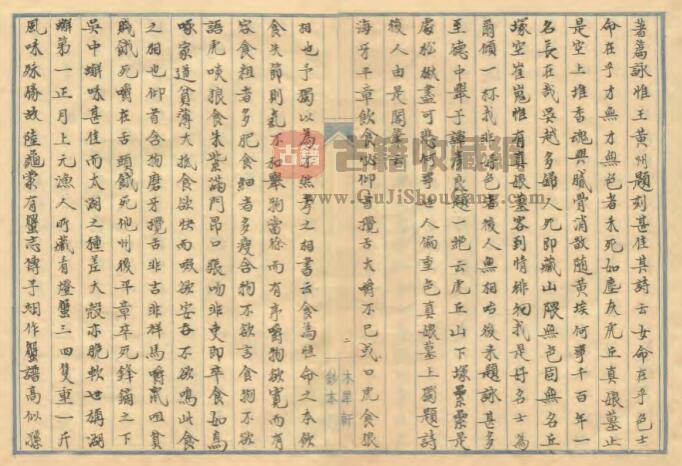 著篇詠惟王黄州題刻甚佳其詩云女命在乎色士
命在乎才無才無色者未死如塵灰虎丘真娘墓止
是空土堆香魂與膩骨消散隨黄埃何事千百年一
名長在哉吳越多婦人死即藏山隈無色固無名丘
塚空崔嵬惟有真娘墓客到情徘徊我是好名士為
爾傾一杯我非好色者後人無相咍後来題詠甚多
至德中舉子譚銖題一絶云虎丘山下塚纍纍是
處松楸盡可悲何事世人偏重色真娘墓上獨題詩
後人由是閣筆云
海牙平章飲食必仰首攪舌大嚼不已或曰虎食狼
相也予獨以為不然考之相書云食為性命之本飲
食失節則氣不和舉物當徐而有序嚼物欲寛而有
容食粗者多肥食細者多瘦含物不欲言食物不欲
語虎啖狼食朱紫滿門昂口張吻非吏即卒食如鳥
啄家道貧薄大抵食欲快而啜欲安吞不欲鳴此食
之相也仰首含物磨牙攪舌非吉非祥馬嚼鼠咀貧
賤餓死嚼在舌頭餓死他州後平章卒死鋒鏑之下
吳中蟹味甚佳而太湖之種差大殼亦脆軟世稱湖
蟹第一正月上元漁人所藏看燈蟹三四隻重一斤
風味殊勝故陸龜蒙有蟹志傅子翊作蟹譜高似孫
二
木犀軒
鈔本
古籍
古籍收藏网
www.QuJiShouCang.com